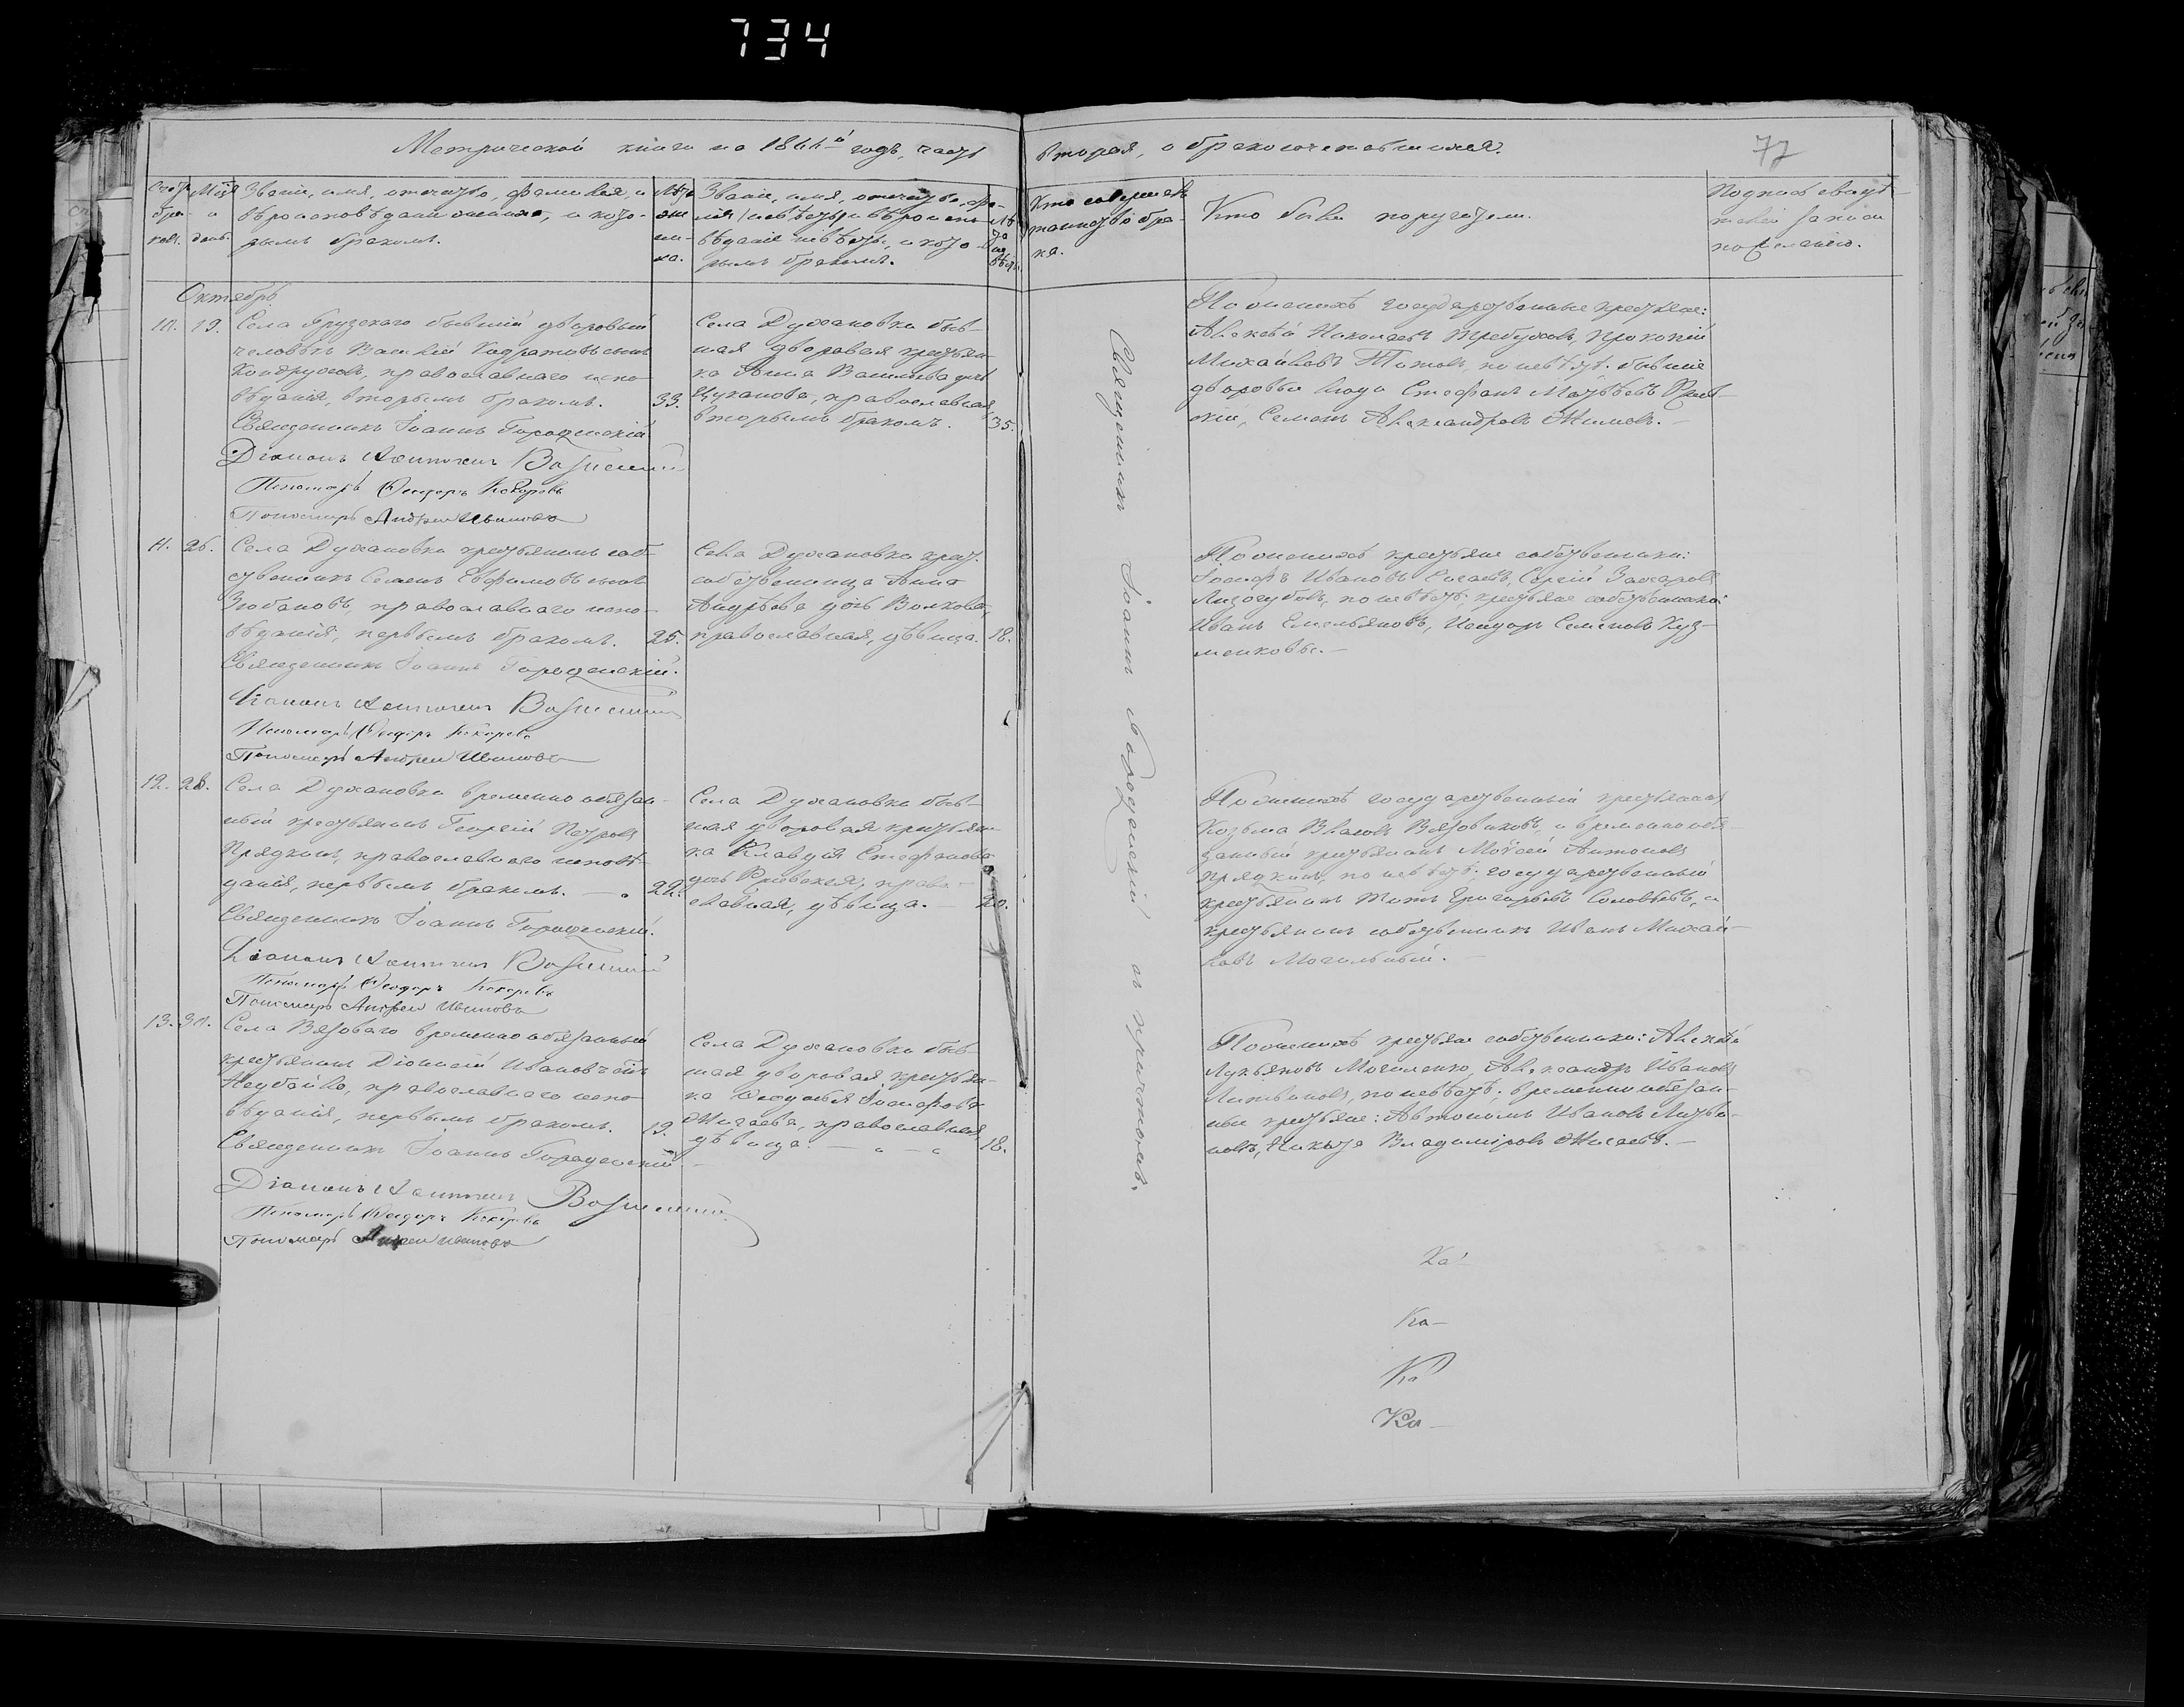 734
Метрической книги на 1866й годъ, часть
вторая, о бракосочетавшихся.
77
Счетъ бра- ковъ.
Мѣся и день.
Званіе, имя, отчество, фамилія, и
вѣроисповѣданіе жениха, и кото-
рымъ бракомъ.
Лѣта
же
ни-
ха.
Званіе, имя, отчество, фа-
милія невѣсты и вѣроиспо-
вѣданіе невѣсты, и кото-
рымъ бракомъ.
Лѣ
та
не
вѣсты.
Кто совершалъ
таинство бра-
ка.
Кто были поручители.
Подпись свидѣ-
телей записи
по желанію.
Октябрь
10. 19. Села Брузскаго бывшій дворовый
человѣкъ Василій Кодратовъ сынъ
Кондруховъ, православнаго испо-
вѣданія, вторымъ бракомъ. 33.
Священникъ Іоаннъ Городенскій
Діаконъ
Пономарь Ѳеодоръ Кокоревъ
Пономарь Андрей Ивановъ
Села Духановки быв-
шая дворовая крестьян-
ка Анна Васильева дочь
Цуканова, православная,
вторымъ бракомъ. 35.
По женихѣ государственные крестьяне:
Алексѣй Николаевъ Требуховъ, Прокопій
Михайловъ Титовъ, по невѣстѣ: бывшіе
дворовые люди Стефанъ Матвѣевъ
Семенъ Александровъ
11. 26. Села Духановки крестьянинъ соб-
ственникъ Семенъ Евфимовъ сынъ
Зюбановъ, православнаго испо-
вѣданія, первымъ бракомъ. 25.
Священникъ Іоаннъ Городенскій.
Діаконъ
Пономарь Ѳеодоръ Кокоревъ
Пономарь Андрей Ивановъ
Села Духановки крест.
собственница Анна
Андрѣева дочь Волкова,
православная, дѣвица. 18.
По женихѣ крестьяне собственники:
Іосифъ Ивановъ Сергій Захаровъ
Лизогубовъ, по невѣстѣ; крестьяне собственники
Иванъ Емельяновъ, Исидоръ Семеновъ Куз-
менковы.—
12. 28. Села Духановки временно обязан-
ный крестьянинъ Георгій Петровъ
Прядкинъ, православнаго исповѣ-
данія, первымъ бракомъ. — 22.
Священникъ Іоаннъ Городенскій.
Діаконъ
Пономарь Ѳеодоръ Кокоревъ
Пономарь Андрей Ивановъ
Села Духановки быв-
шая дворовая крестьян-
ка Клавдія Стефанова
дочь право-
славная, дѣвица. — 20.
По женихѣ государственный крестьянинъ
Козьма Власовъ Вязовиковъ, и временно обя-
занный крестьянинъ Моѵсей Антоновъ
Прядкинъ, по невѣстѣ; государственный
крестьянинъ Титъ Григорьевъ Соловьевъ, и
крестьянинъ собственникъ Иванъ Михай-
ловъ Могильный.—
13. 30. Села Вязоваго временно обязанный
крестьянинъ Діонисій Ивановъ сынъ
православнаго испо-
вѣданія, первымъ бракомъ. 19.
Священникъ Іоаннъ Городенскій
Діаконъ
Пономарь Ѳеодоръ Кокоревъ
Пономарь Андрей Ивановъ
Села Духановки быв-
шая дворовая крестьян-
ка Іосифова
Жигаева, православная,
дѣвица. — 18.
По женихѣ крестьяне собственники: Алексѣй
Лукьяновъ Александръ Ивановъ
Литвиновъ, по невѣстѣ; временно обязан-
ные крестьяне: Автономъ Ивановъ Литви-
новъ, Никита Владиміровъ Жигаевъ.—
Священникъ Іоаннъ Городенскій съ причтомъ.
Ка
Ка—
Ка
Ка—